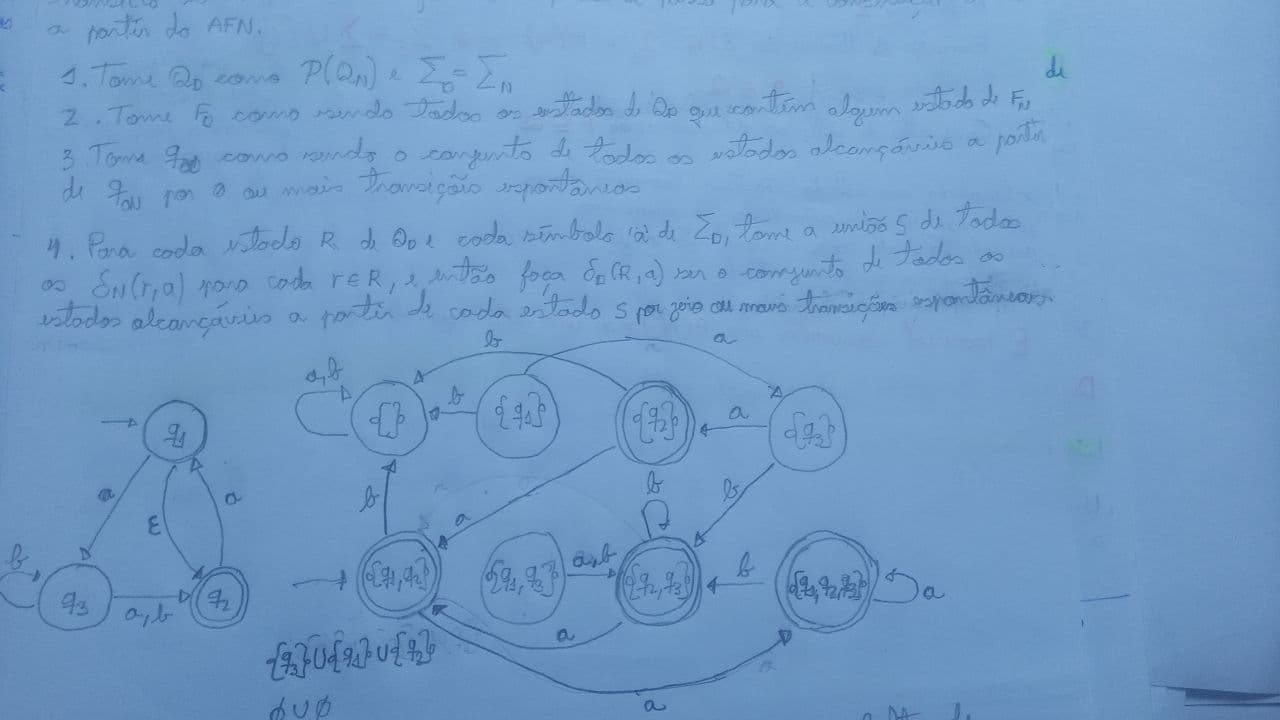 a partir do AFN.
de
1. Tome Q_D como P(Q_N) e Σ_D = Σ_N
2. Tome F_D como sendo todos os estados de Q_D que contêm algum estado de F_N
3. Tome q_0D como sendo o conjunto de todos os estados alcançáveis a partir
de q_0N por 0 ou mais transição espontâneas
4. Para cada estado R de Q_D e cada símbolo 'a' de Σ_D, tome a união S de todos
os δ_N(r,a) para cada r∈R, e então faça δ_D(R,a) ser o conjunto de todos os
estados alcançáveis a partir de cada estado S por zero ou mais transições espontâneas.
b a
a,b {} b {q1} {q2} a {q3}
q1
a ε a b a b b
b q3 a,b q2 {q1,q2} {q1,q3} a,b {q2,q3} b {q1,q2,q3} a
a
{q3}∪{q1}∪{q2}
∅∪∅ a